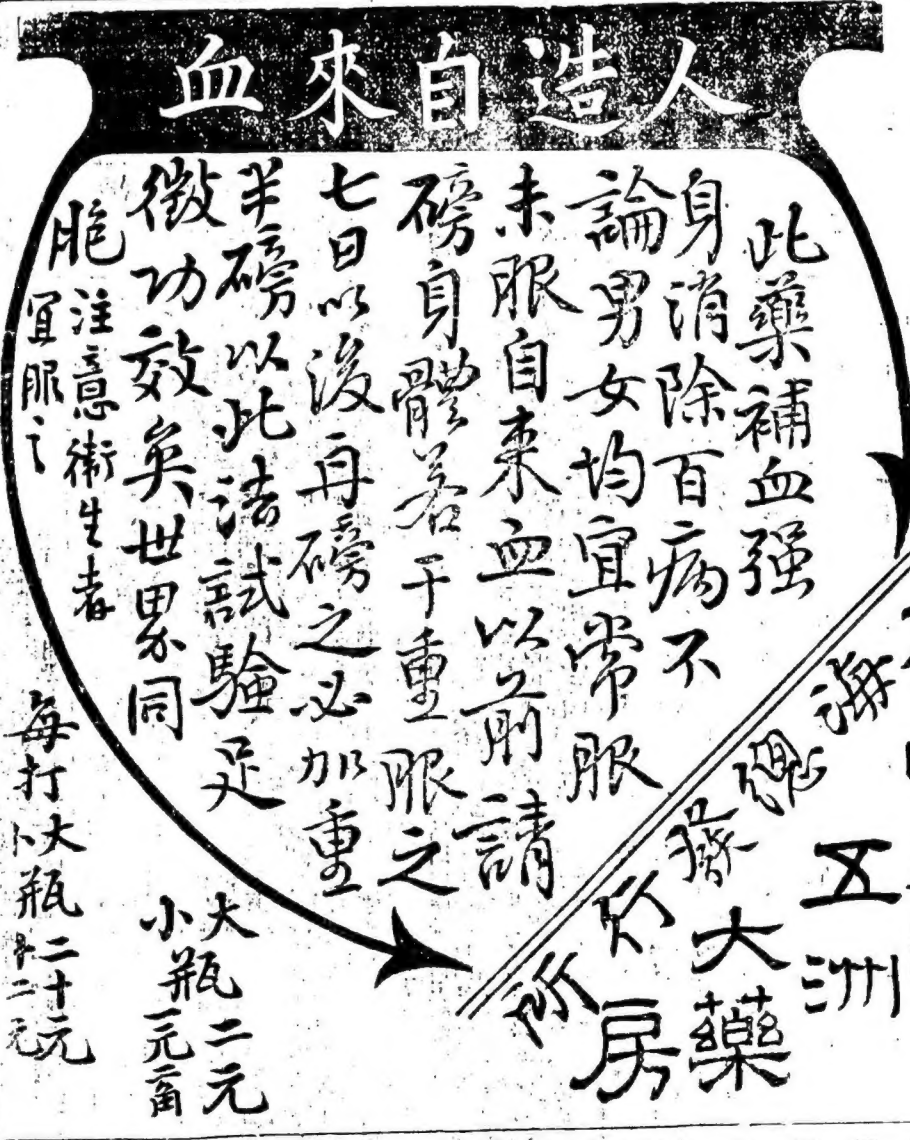 人造自來血
此藥補血强
身消除百病不
論男女均宜常服
未服自來血以前請
磅身體若干重服之
七日以後再磅之必加重
半磅以此法試驗足
徵功效與世界同
胞
注意衞生者
宜服之
大瓶二元
小瓶一元二角
每打大瓶二十元
小瓶十二元
海
總發行所
五洲
大藥
房